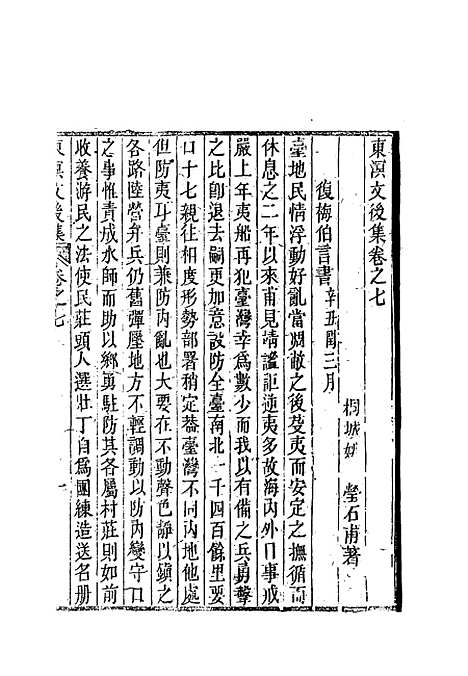 東溟文後集卷之七
桐城姚 瑩石甫著
復梅伯言書辛丑閏三月
臺地民情浮動好亂當凋敝之後芟夷而安定之撫循而
休息之二年以來甫見情謐詎逆夷多故海內外日事戒
嚴上年夷船再犯臺灣幸爲數少而我以有備之兵勇聲
之比卽退去嗣更加意設防全臺南北一千四百餘里要
口十七親往相度形勢部署稍定葢臺灣不同內地他處
但防夷耳臺則兼防內亂也大要在不動聲色以鎮之
各路陸營弁兵仍舊彈壓地方不輕調動以防內變守口
之事惟責成水師而助以鄉勇駐防其各屬村莊則如前
收養游民之法使民莊頭人選壯丁自爲團練造送名册
東溟文後集 卷之七 一